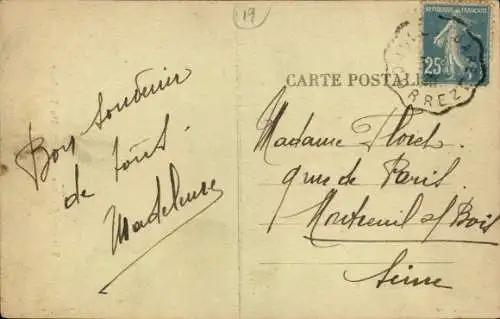 19
RÉPUBLIQUE FRANÇAISE
25c
CARTE POSTALE
Bon souvenir
de tous.
Madeleine
Madame Floret.
rue de Paris.
Montreuil s/ Bois
Seine